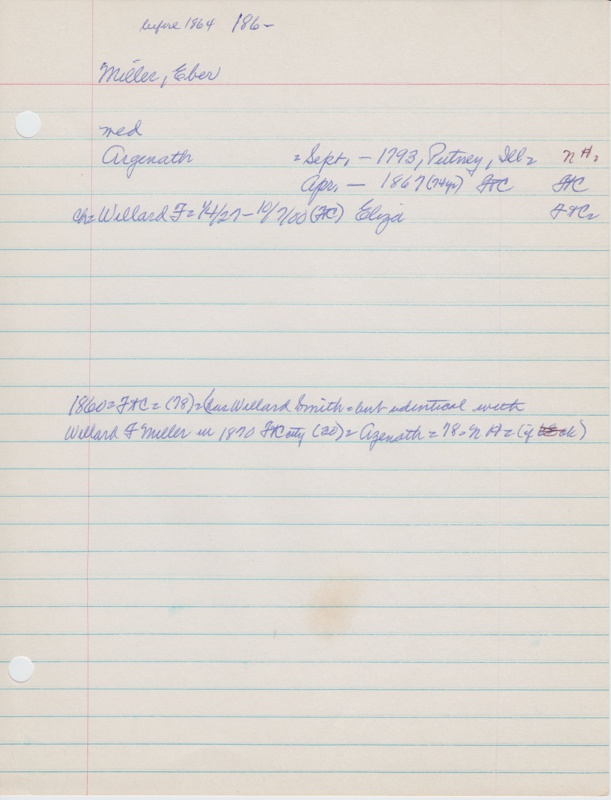 before 1864 186-
Miller, Eber
med
Argenath = Sept, - 1793, Putney, Ill= N H=
Apr, - 1867 (74yr) FtC FtC
ch= Willard F= 1/4/27 - 10/7/00 (FtC) Eliza FtC=
1860= FtC= (78)= (as Willard Smith= but identical with
Willard F Miller in 1870 FtCity (20)= Azenath= 78= N H= (if ok)